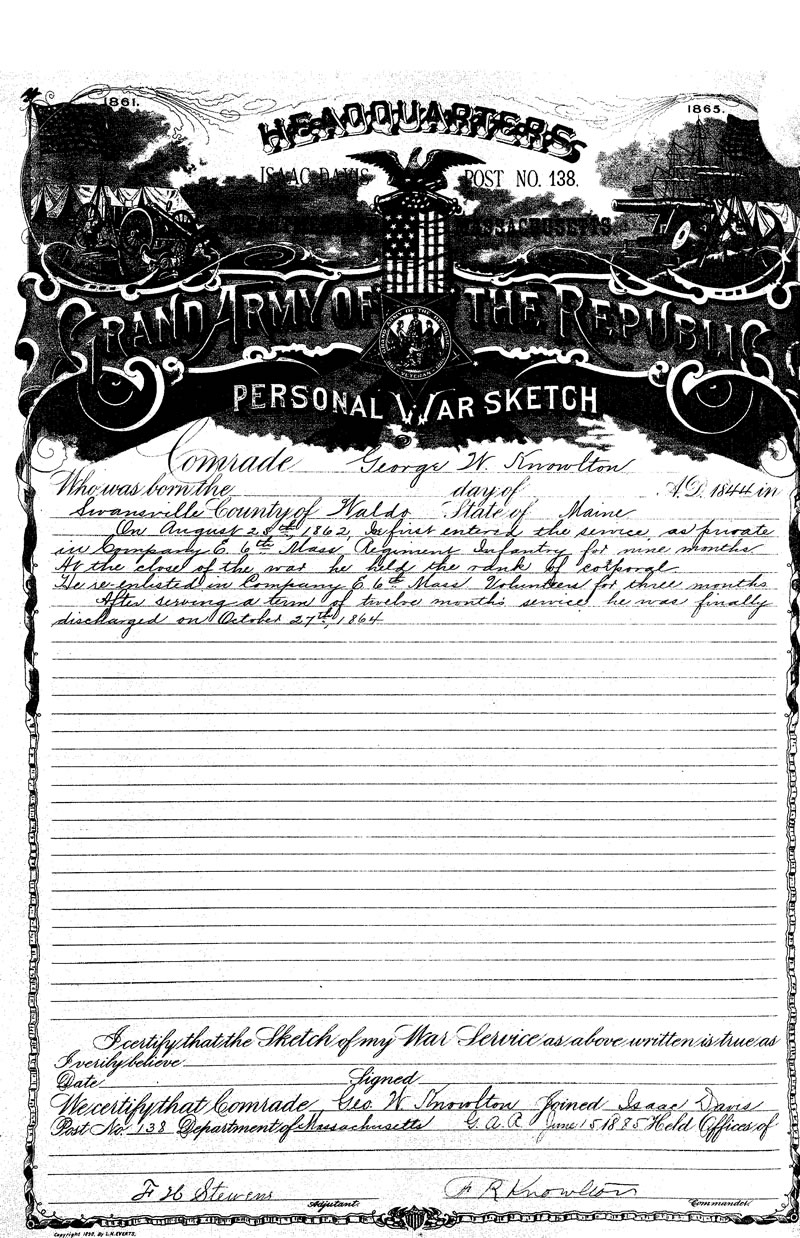 1861.
1865.
HEADQUARTERS
ISAAC DAVIS POST NO. 138.
DEPARTMENT OF MASSACHUSETTS
GRAND ARMY OF THE REPUBLIC
PERSONAL WAR SKETCH
Comrade George W. Knowlton
Who was born the day of A.D. 1844 in
Swansville County of Waldo State of Maine
On August 28th, 1862, he first entered the service, as private
in Company E. 6th Mass, Regiment Infantry for nine months
At the close of the war he held the rank of corporal
He re-enlisted in Company E 6th Mass Volunteers for three months
After serving a term of twelve months service he was finally
discharged on October 27th, 1864
I certify that the Sketch of my War Service as above written is true as
I verily believe
Date Signed
We certify that Comrade Geo. W. Knowlton Joined Isaac Davis
Post No. 138 Department of Massachusetts G. A. R June 15 1885 Held Offices of
F H Stevens R Knowlton
Adjutant. Commander.
Copyright 1890, By L.H. EVERTS.